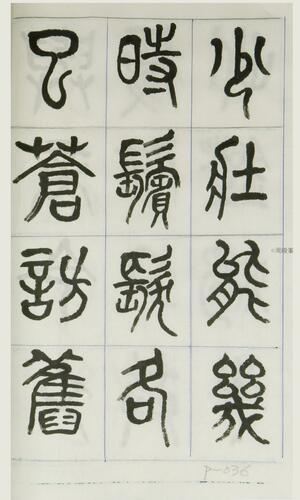 少壯能幾
時鬢髮各
已蒼訪舊
p-036